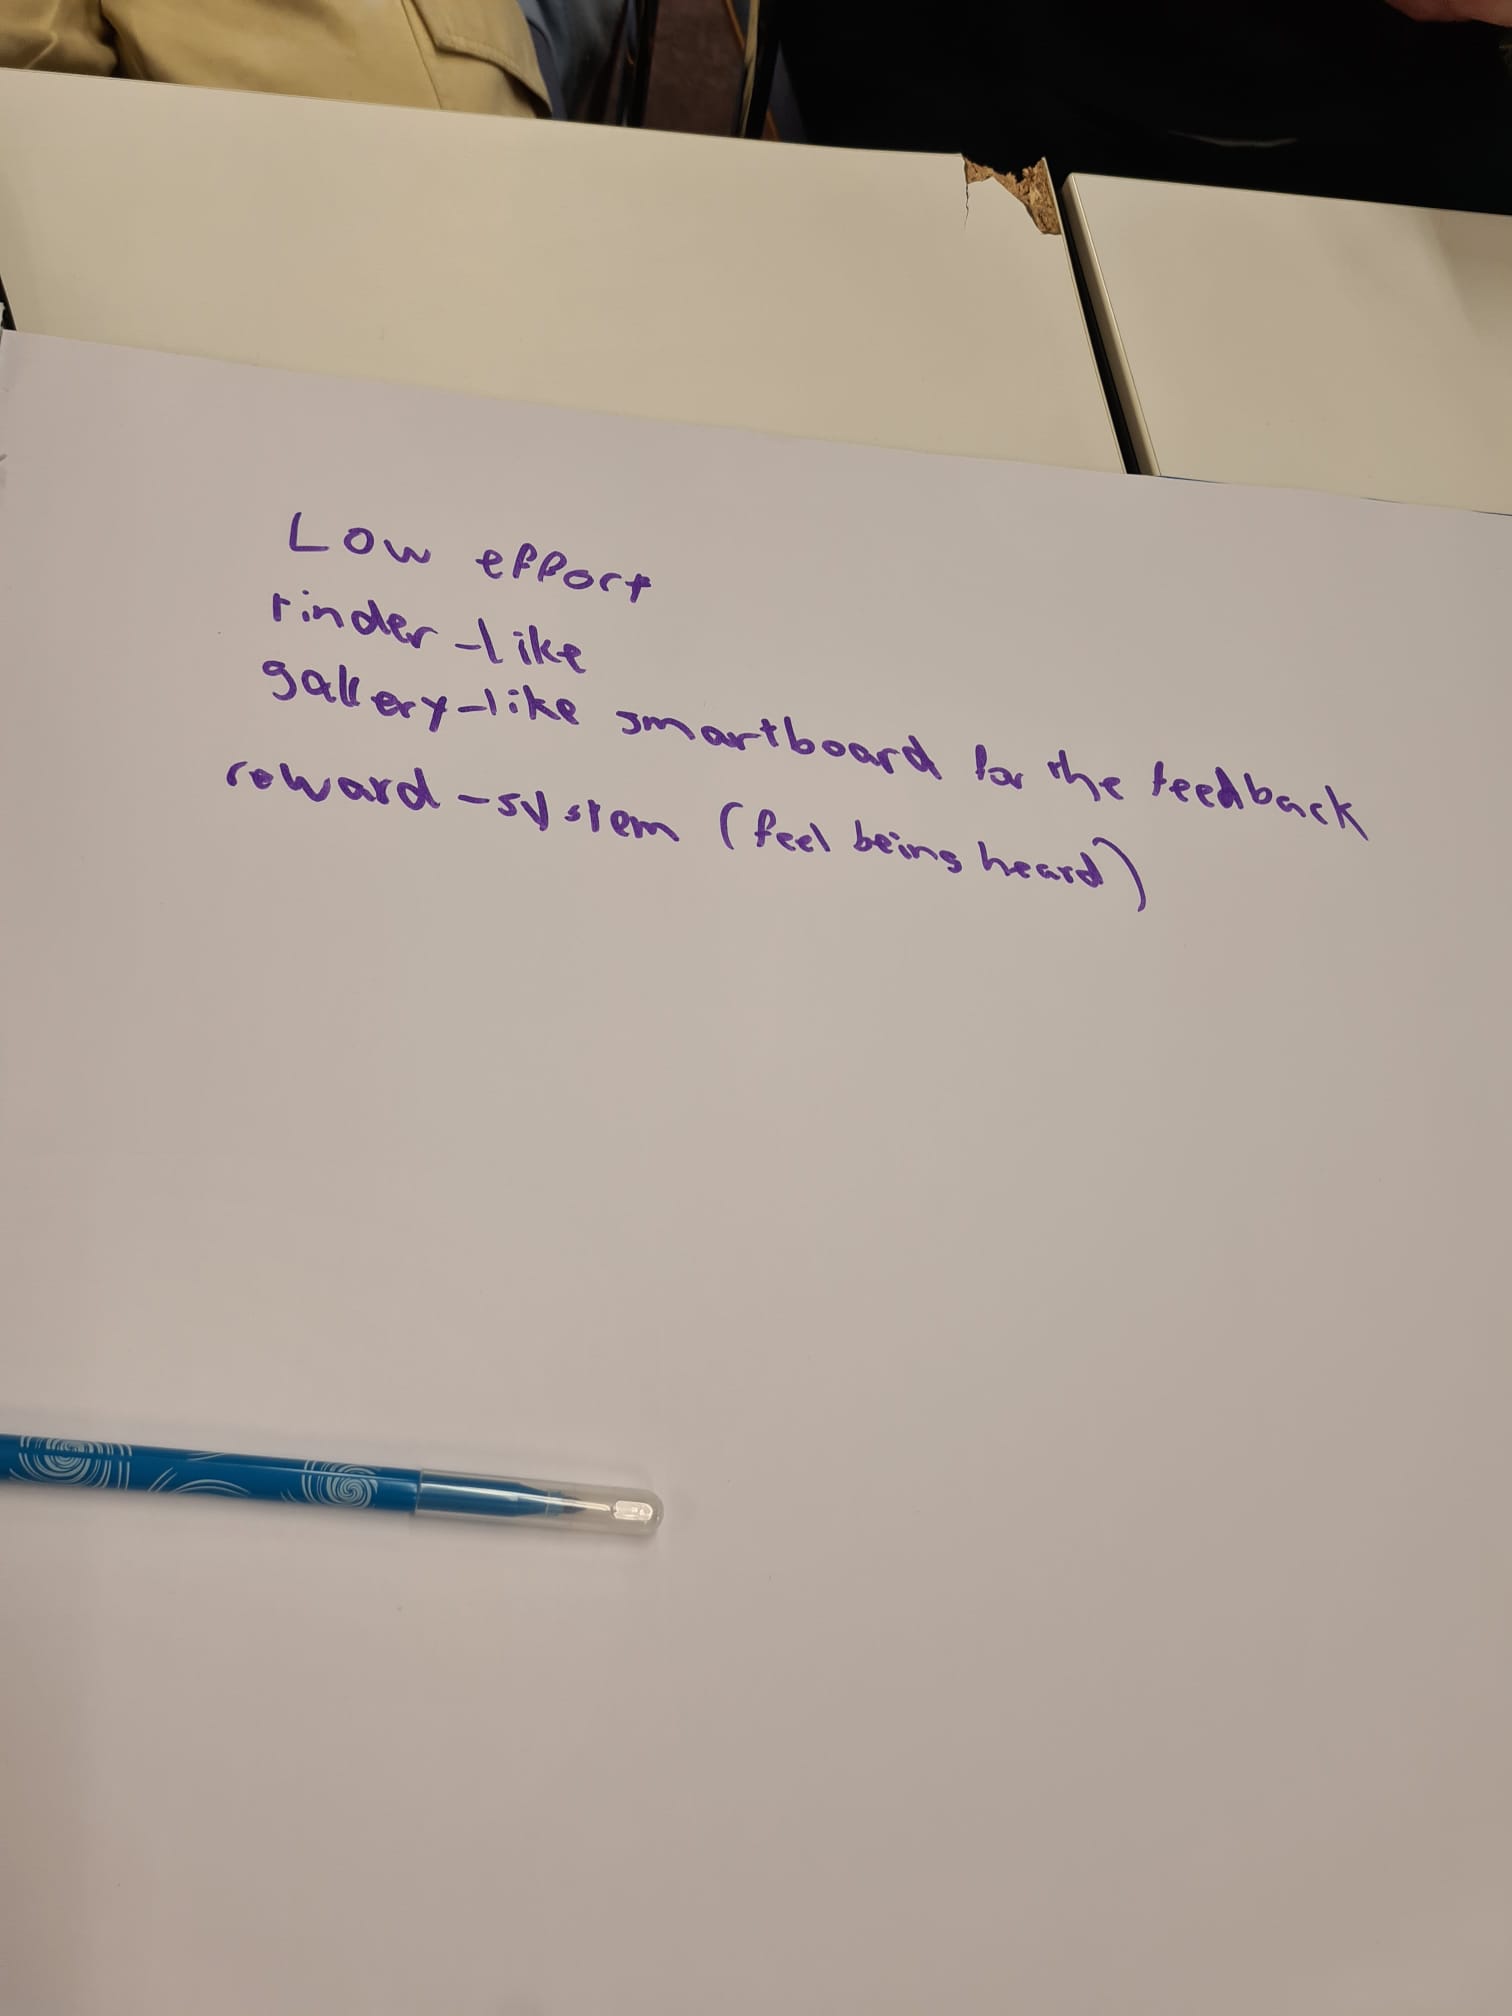 Low effort
tinder-like
gallery-like smartboard for the feedback
reward-system (feel being heard)